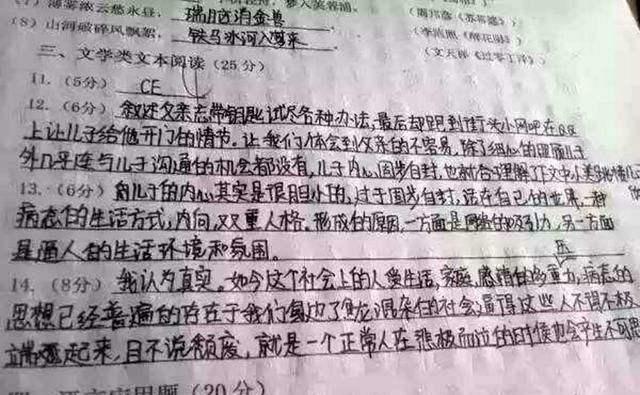 (7) 薄雾浓云愁永昼，瑞脑消金兽
(李清照《醉花阴》)
(8) 山河破碎风飘絮，铁马冰河入梦来
(文天祥《过零丁洋》)
三、文学类文本阅读（25分）
11.（5分） CE
12.（6分） 叙述父亲忘带钥匙试尽各种办法，最后却跑到街头小网吧在QQ
上让儿子给他开门的情节。让我们体会到父亲的不容易，除了细心的照顾儿子
外几乎连与儿子沟通的机会都没有，儿子内心固步自封，也就合理解了作文中
13.（6分） 儿子的内心其实是很胆小的，过于固步自封，活在自己的世界，一种
病态的生活方式，内向，双重人格。形成的原因，一方面是网络的吸引力，另一方面
是逼人的生活环境和氛围。
14.（8分） 我认为真实。如今这个社会上的人受生活，家庭，感情的多重压力，病态的
思想已经普遍的存在于我们 社会，逼得这些人不得不极
端 起来，且不说颓废，就是一个正常人在悲极而泣的时候也会产生不可
（20分）